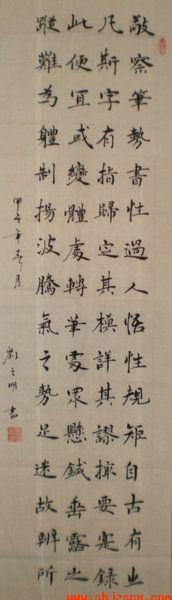 敲察筆勢書性過人恬性規矩自古有之
凡斯字有指歸定其模詳其謬撮要実錄
此便宜或變體處轉筆處眾懸鍼垂露之
蹤難為體制揚波騰氣之勢足迷故辨所
甲午年春月
劉之明書
www.shizscx.com